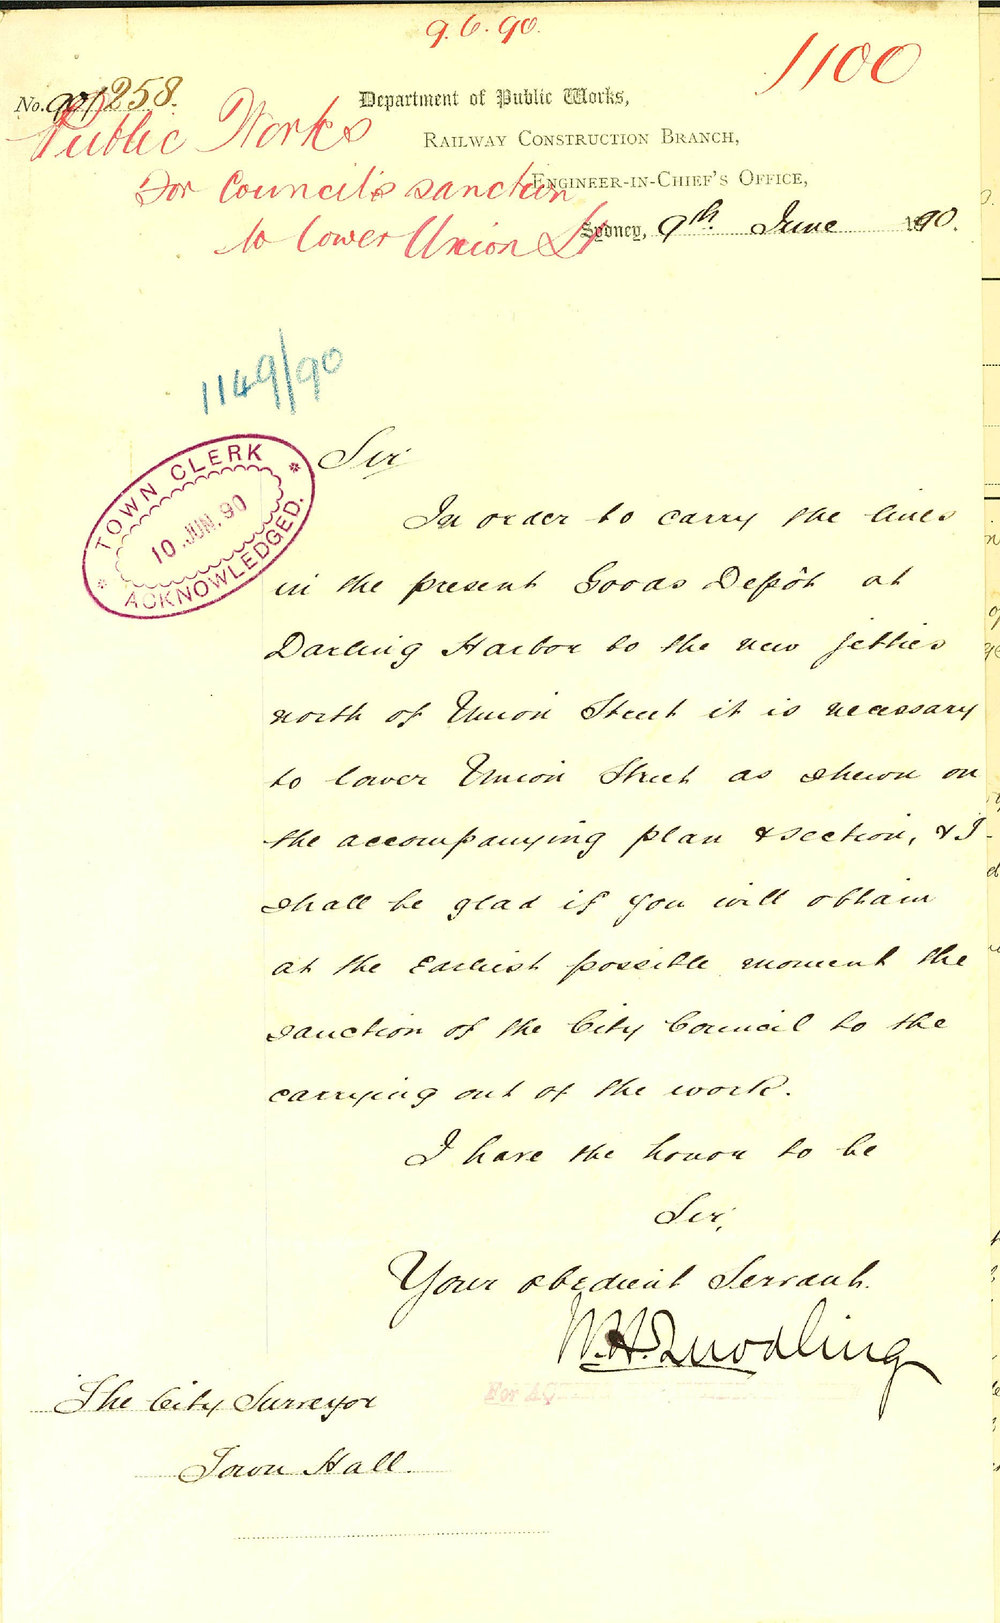 9.6.90.
1100
No. 90/1258.
Department of Public Works,
Public Works
Railway Construction Branch,
For Council's sanction
Engineer-in-Chief's Office,
to lower Union St
Sydney, 9th June 1890.
1149/90
TOWN CLERK
10 JUN. 90
ACKNOWLEDGED.
Sir
In order to carry the lines
in the present Goods Depôt at
Darling Harbor to the new jetties
north of Union Street it is necessary
to lower Union Street as shewn on
the accompanying plan & section, & I
shall be glad if you will obtain
at the Earliest possible moment the
sanction of the City Council to the
carrying out of the work.
I have the honor to be
Sir,
Your obedient Servant.
W.H. Quodling
For
The City Surveyor
Town Hall.